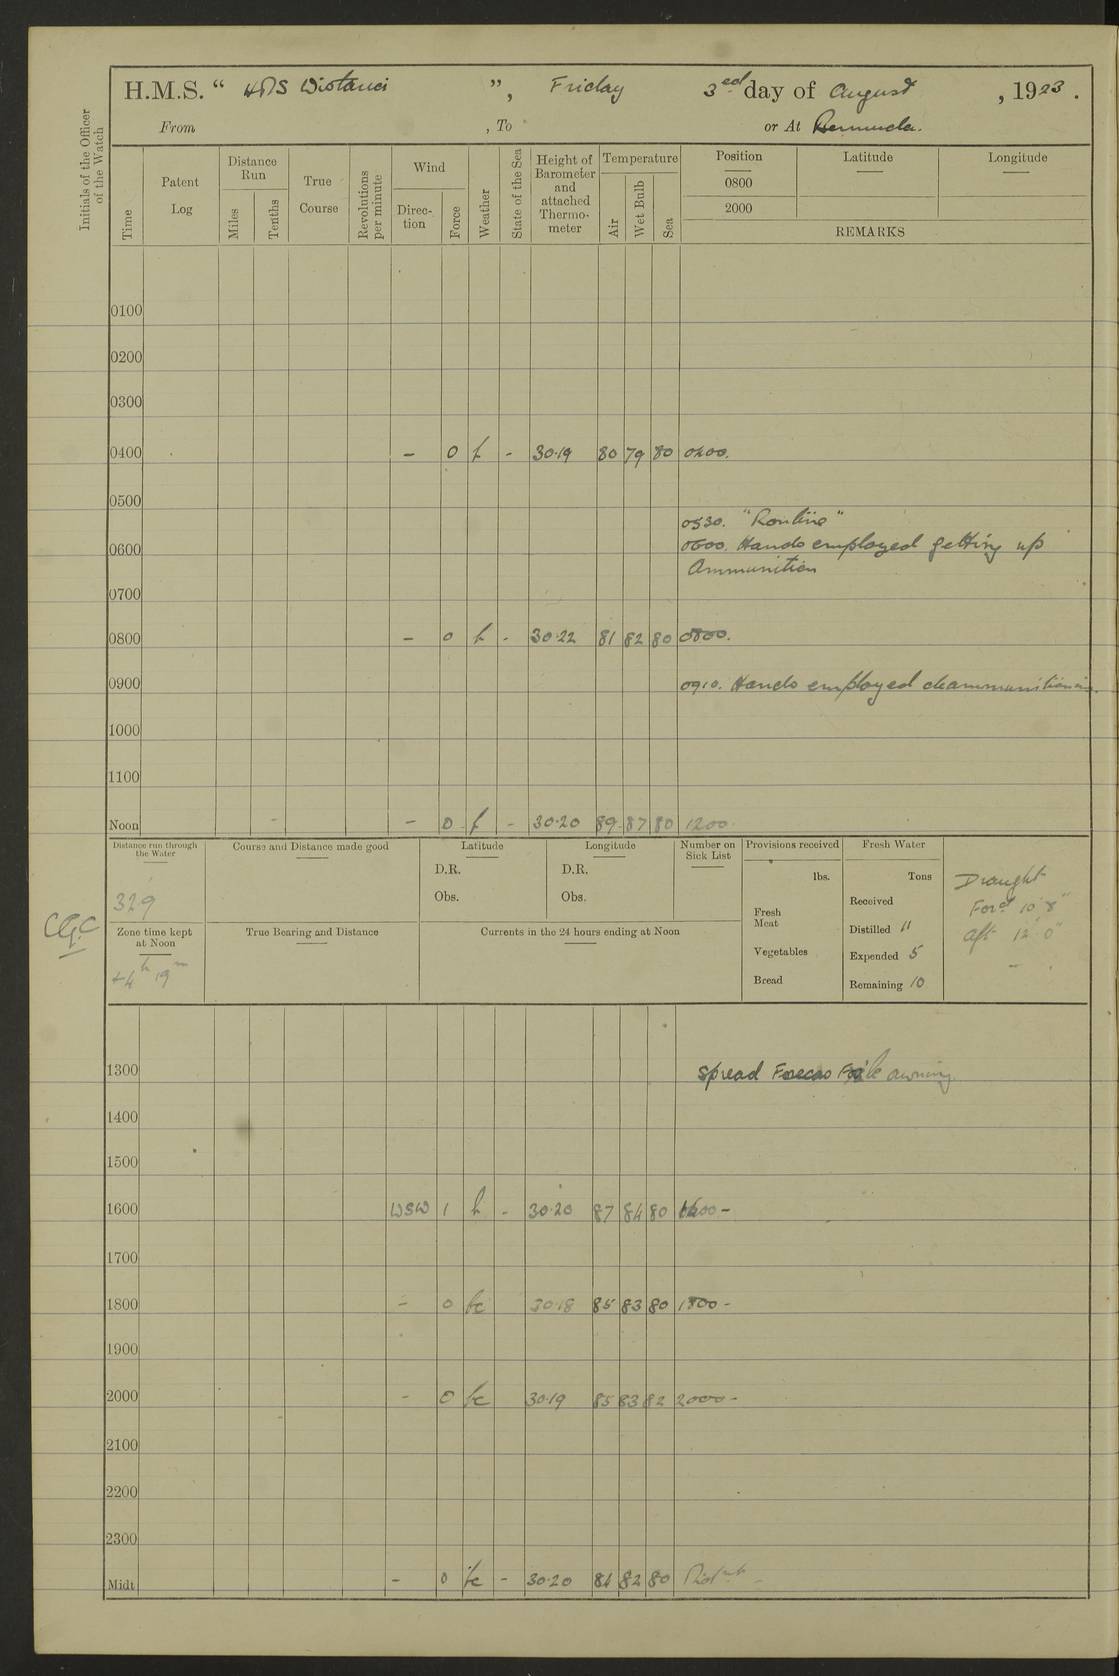 H.M.S. “ HMS Wistaria ”, Friday 3rd day of August, 1923.
From , To or At Bermuda.
Initials of the Officer of the Watch
Time
Patent Log
Distance Run
Miles
Tenths
True Course
Revolutions per minute
Wind
Direc-tion
Force
Weather
State of the Sea
Height of Barometer and attached Thermo-meter
Temperature
Air
Wet Bulb
Sea
Position
0800
2000
Latitude
Longitude
REMARKS
0100
0200
0300
0400 - 0 b - 30.19 80 79 80 0400.
0500
0530. "Routine"
0600 0600. Hands employed getting up
Ammunition
0700
0800 - 0 b - 30.22 81 82 80 0800.
0900 0910. Hands employed deammunitioning.
1000
1100
Noon - 0 b - 30.20 89 87 80 1200
Distance run through the Water
329
Zone time kept at Noon
+4h 19m
Course and Distance made good
True Bearing and Distance
Latitude
D.R.
Obs.
Longitude
D.R.
Obs.
Currents in the 24 hours ending at Noon
Number on Sick List
Provisions received
lbs.
Fresh Meat
Vegetables
Bread
Fresh Water
Tons
Received
Distilled 11
Expended 5
Remaining 10
Draught
Ford 10' 8"
Aft 12' 0"
1300 Spread awning
1400
1500
1600 WSW 1 b - 30.20 87 84 80 1600 -
1700
1800 - 0 bc 30.18 85 83 80 1800 -
1900
2000 - 0 bc 30.19 85 83 82 2000 -
2100
2200
2300
Midt - 0 bc - 30.20 84 82 80